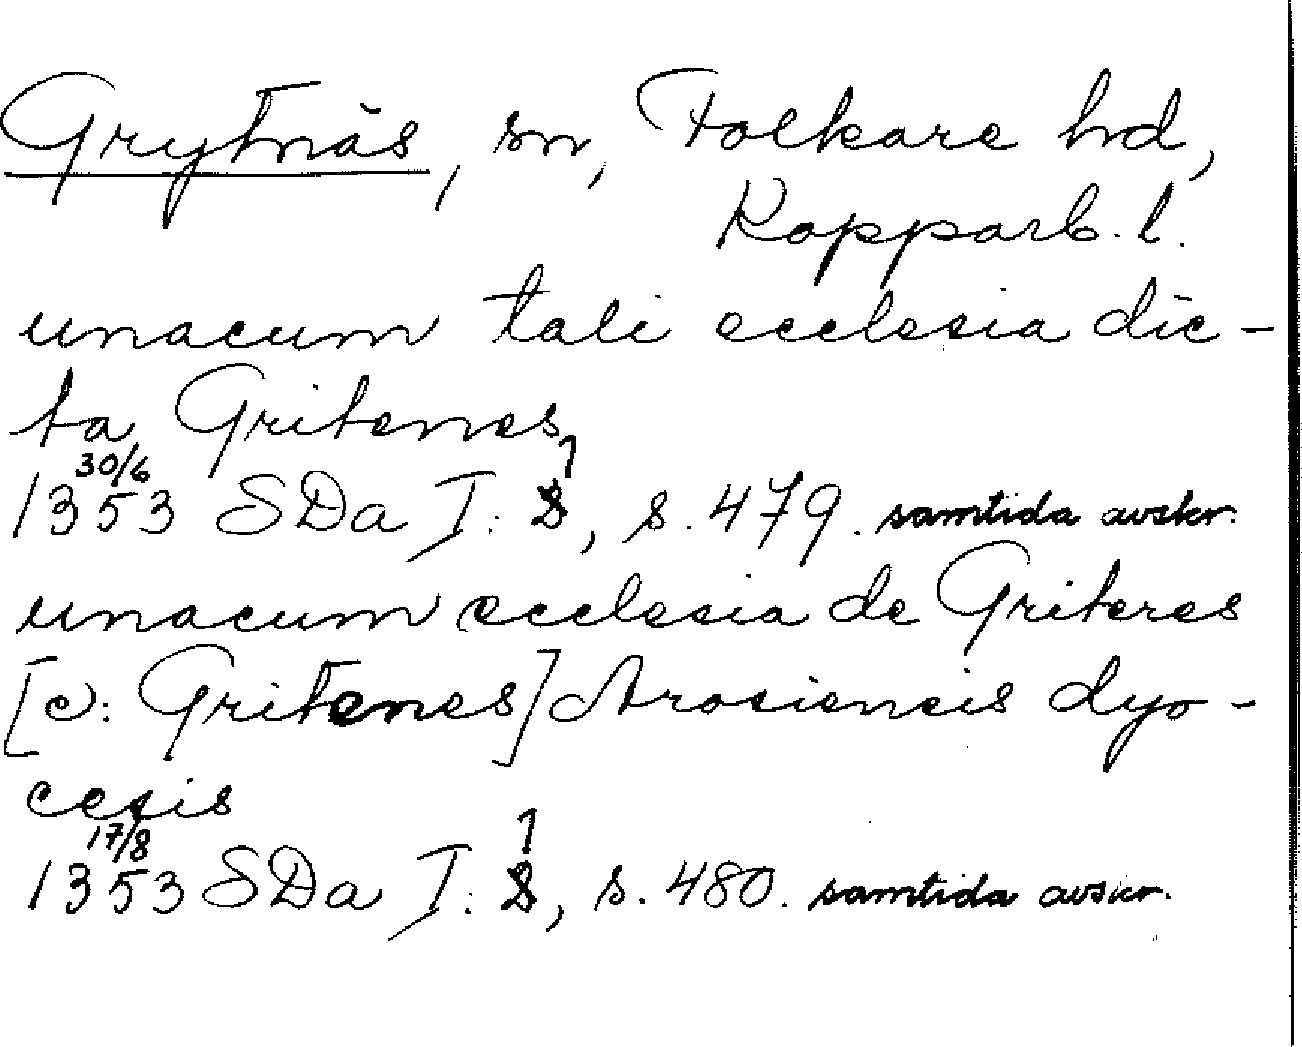 Grytnäs, sn, Folkare hd,
Kopparb. l.
unacum tali ecclesia dic-
ta Gritenes
1353 30/6 SDa I: 1, s. 479. samtida avskr.
unacum ecclesia de Griteres
[ɔ: Gritenes] Arosiensis dyo-
cesis
1353 17/8 SDa I: 1, s. 480. samtida avskr.